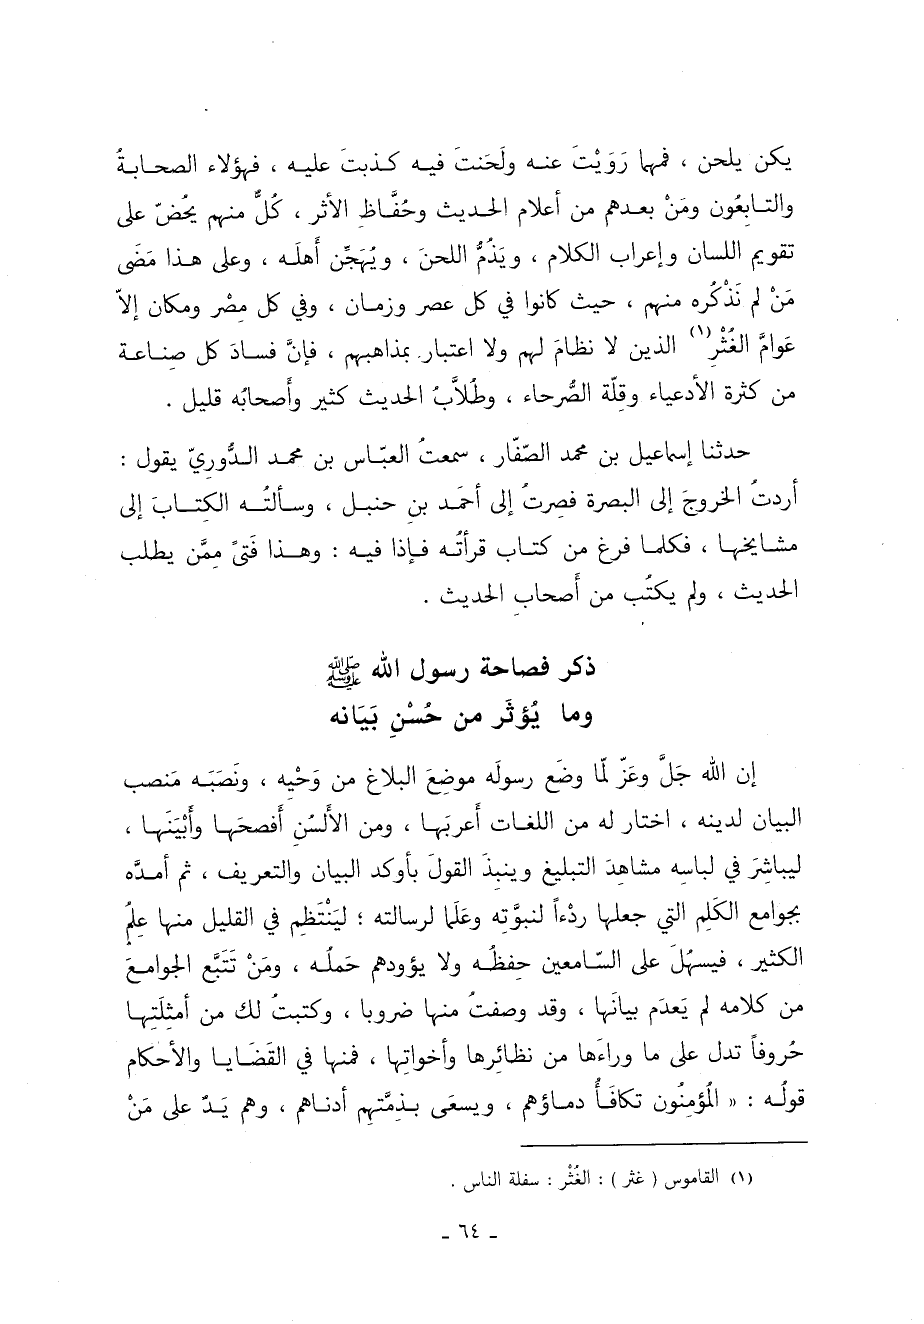 يكن يلحن ، فمهما رَوَيْتَ عنه ولَحَنتَ فيه كذبتَ عليه ، فهؤلاء الصحابةُ
والتابعُون ومَنْ بعدهم من أعلام الحديث وحُفَّاظِ الأثر ، كُلٌّ منهم يحُضّ على
تقويم اللسان وإعراب الكلام ، ويَذُمُّ اللحنَ ، ويُهَجِّن أهلَه ، وعلى هذا مَضَى
مَنْ لم نَذْكُره منهم ، حيث كانوا في كل عصر وزمان ، وفي كل مصْر ومكان إلاّ
عَوامَّ الغُثْر(١) الذين لا نظامَ لهم ولا اعتبار بمذاهبهم ، فإنَّ فسادَ كل صناعة
من كثرة الأدعياء وقلّة الصُّرحاء ، وطُلاَّبُ الحديث كثير وأصحابُه قليل .
حدثنا إسماعيل بن محمد الصّفّار ، سمعتُ العبّاس بن محمد الدُّوريّ يقول :
أردتُ الخروجَ إلى البصرة فصرتُ إلى أحمد بن حنبل ، وسألتُه الكتابَ إلى
مشايخها ، فكلما فرغ من كتاب قرأتُه فإذا فيه : وهذا فَتىً ممَّن يطلب
الحديث ، ولم يكتُب من أصحابِ الحديث .
ذكر فصاحة رسول الله ﷺ
وما يُؤثَر من حُسْنِ بَيَانه
إن الله جَلَّ وعَزّ لمّا وضَع رسولَه موضعَ البلاغ من وَحْيِه ، ونَصَبَه مَنصب
البيان لدينه ، اختار له من اللغات أعربَها ، ومن الألسُن أفصحَها وأَبْيَنَها ،
ليباشِرَ في لباسِه مشاهدَ التبليغ وينبذَ القولَ بأوكد البيان والتعريف ، ثم أمدَّه
بجوامع الكَلِم التي جعلها ردْءاً لنبوَّته وعَلَما لرسالته ؛ ليَنْتَظِم في القليل منها علِمُ
الكثير ، فيسهُلَ على السّامعين حِفظُه ولا يؤودهم حَملُه ، ومَنْ تَتَبَّع الجوامعَ
من كلامه لم يَعدَم بيانَها ، وقد وصفتُ منها ضروبا ، وكتبتُ لك من أمثِلَتِها
حُروفاً تدل على ما وراءَها من نظائرها وأخواتِها ، فمنها في القَضَايا والأحكام
قولُه : « المُؤمِنُون تكافَأُ دماؤهم ، ويسعَى بذمَّتِهم أدناهم ، وهم يَدٌ على مَنْ
(١) القاموس ( غثر ) : الغُثْر : سفلة الناس .
ـ ٦٤ ـ